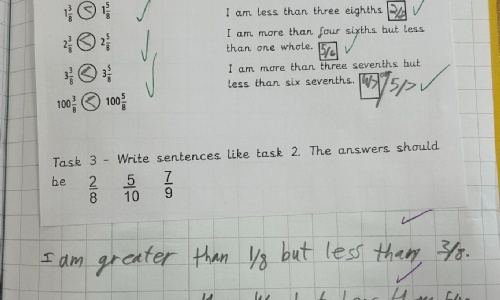 1 3/8 < 1 5/8
I am less than three eighths. 2/8
2 3/8 < 2 5/8
I am more than four sixths but less
than one whole. 5/6
3 3/8 < 3 5/8
I am more than three sevenths but
less than six sevenths. 4/7 or 5/7
100 3/8 < 100 5/8
Task 3 - Write sentences like task 2. The answers should
be 2/8 5/10 7/9
I am greater than 1/8 but less than 3/8.